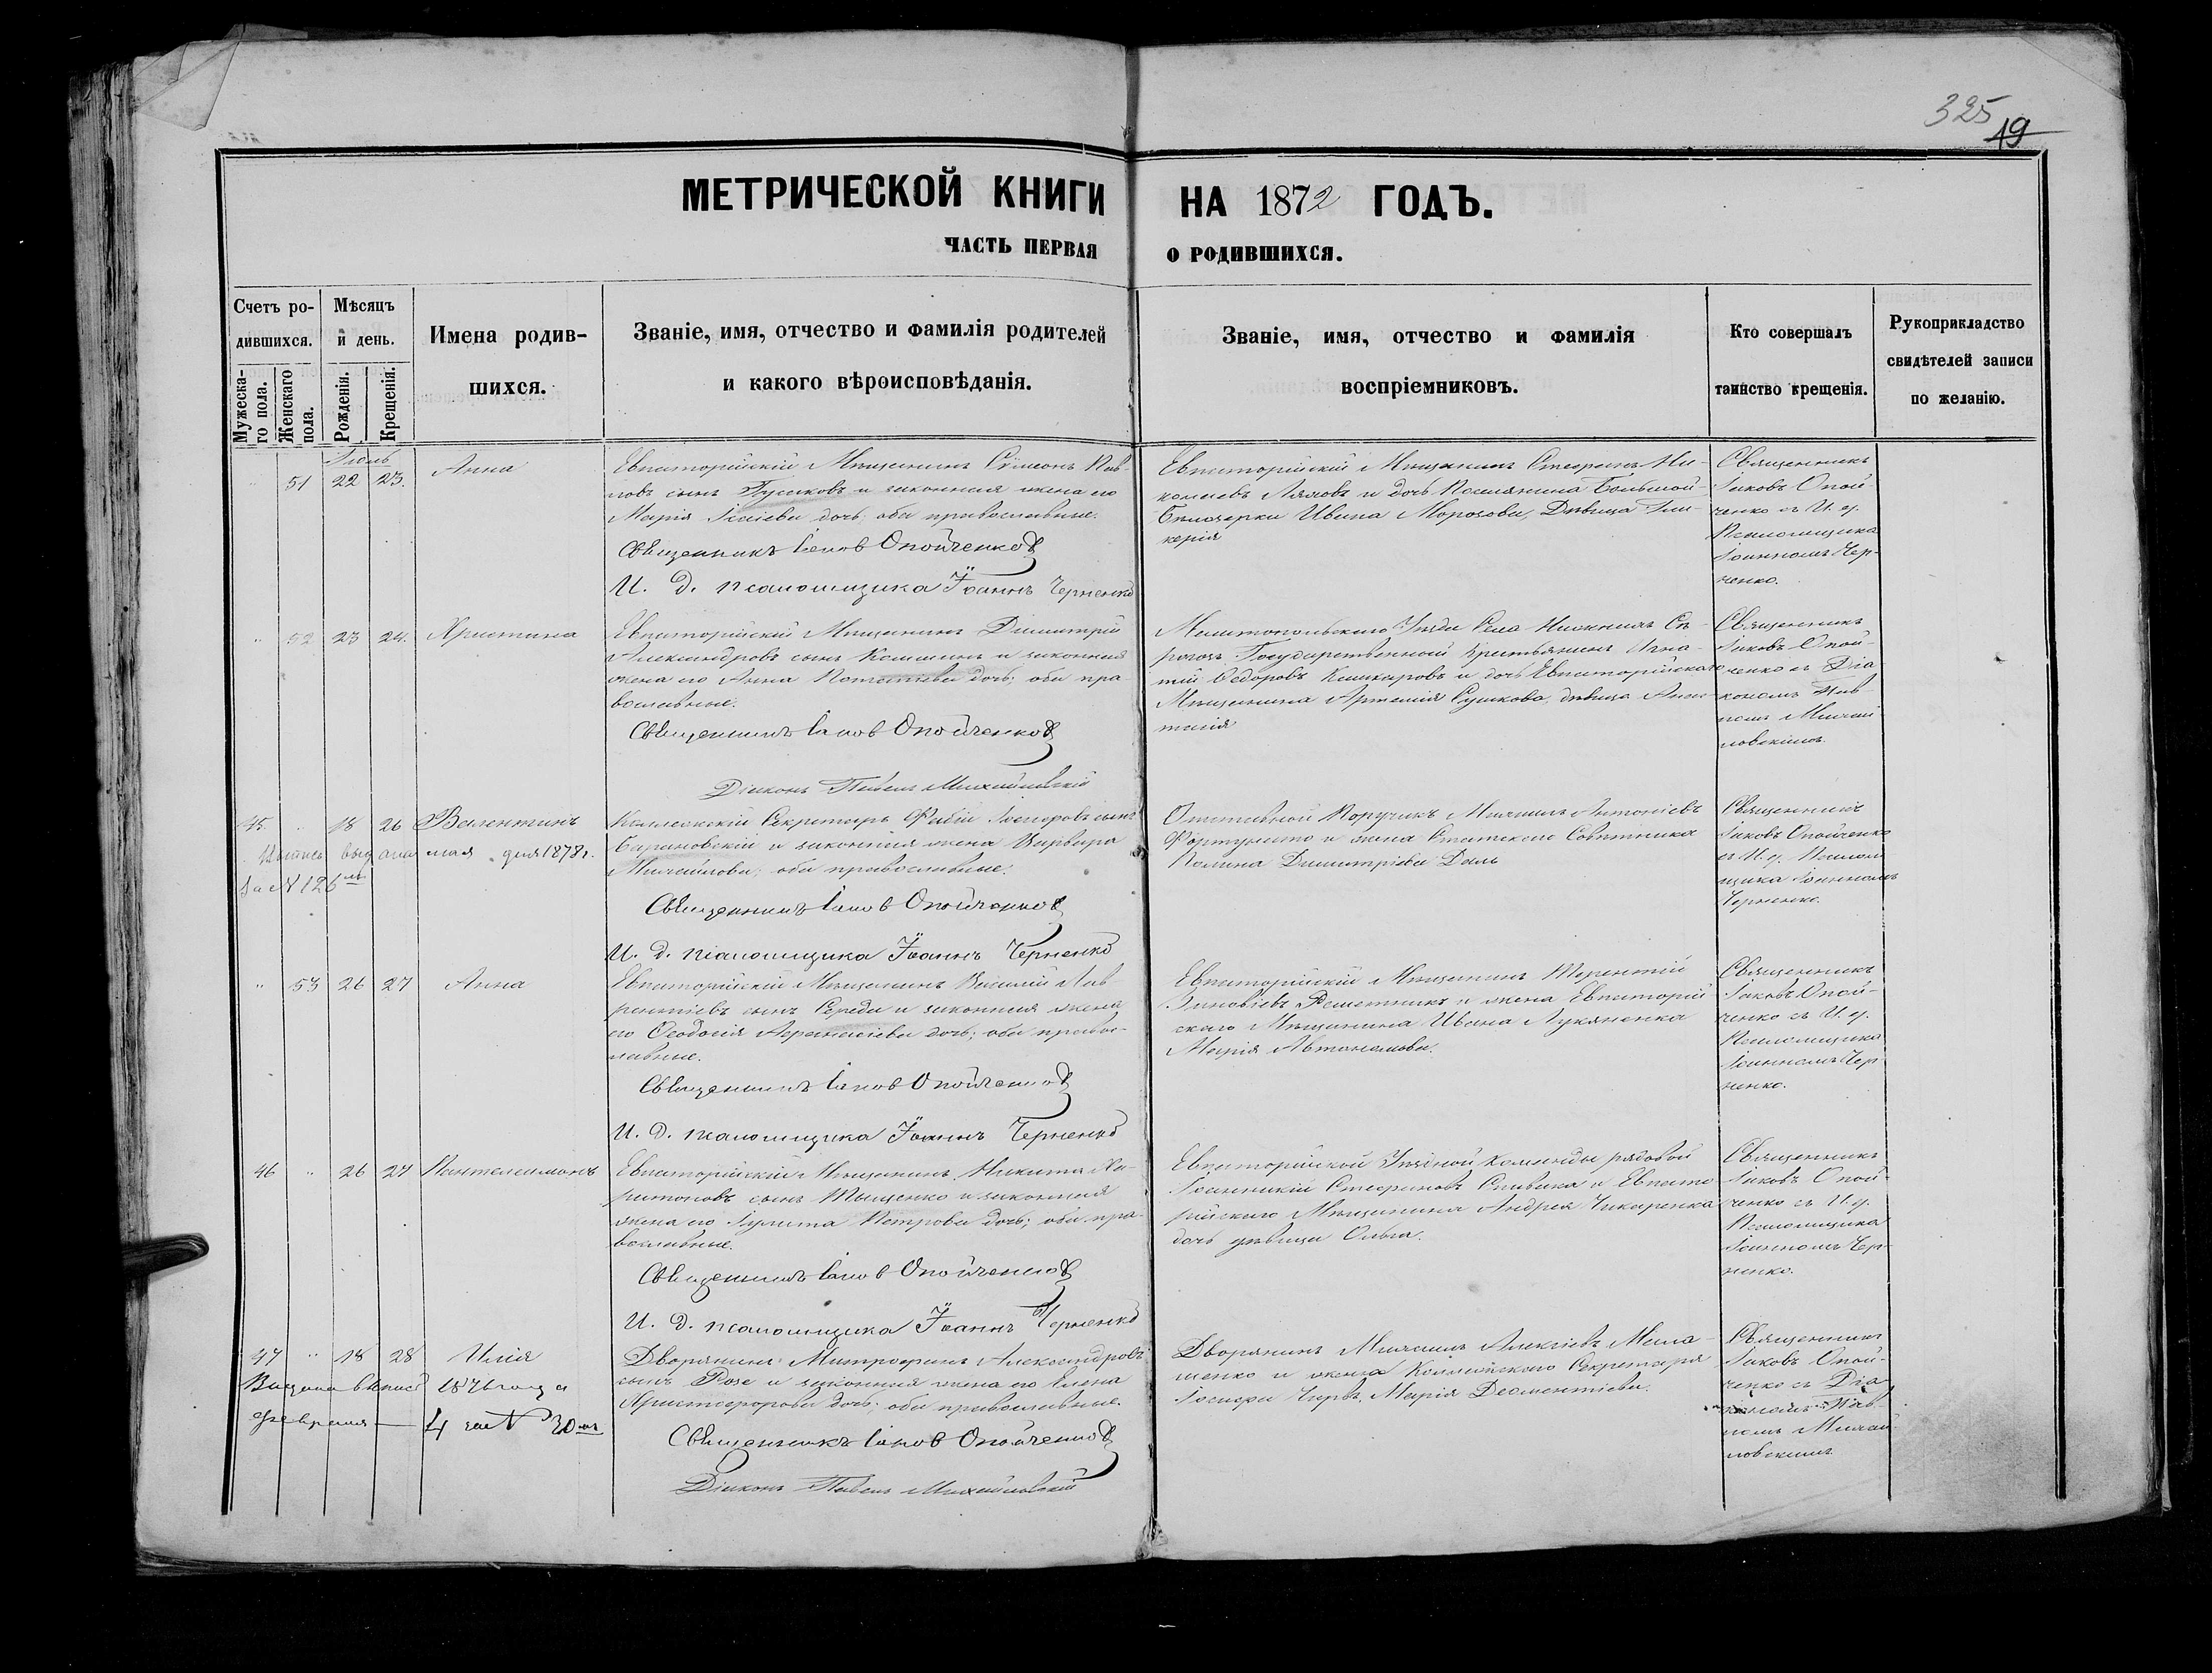 325
19
МЕТРИЧЕСКОЙ КНИГИ НА 1872 ГОДЪ.
ЧАСТЬ ПЕРВАЯ О РОДИВШИХСЯ.
Счетъ ро-
дившихся.
Мужеска-
го пола.
Женскаго
пола.
Мѣсяцъ
и день.
Рожденія.
Крещенія.
Имена родив-
шихся.
Званіе, имя, отчество и фамилія родителей
и какого вѣроисповѣданія.
Званіе, имя, отчество и фамилія
воспріемниковъ.
Кто совершалъ
таинство крещенія.
Рукоприкладство
свидѣтелей записи
по желанію.
51 22 23. Анна
Евпаторійскій Мѣщанинъ Сѵмеонъ Пав-
ловъ сынъ и законная жена его
Марія Исаіева дочь; оба православные.
Священникъ Іаковъ Опойченко
И. д. псаломщика Іоаннъ Черненко
Евпаторійскій Мѣщанинъ Стефанъ Ни-
колаевъ и дочь Поселянина Большой-
Бѣлозерки Ивана Морозова, Дѣвица Гли-
керія
Священникъ
Іаковъ Опой-
ченко съ И. д.
Псаломщика
Іоанномъ Чер-
ненко.
" 52 23 24. Христина
Евпаторійскій Мѣщанинъ Димитрій
Александровъ сынъ и законная
жена его Анна дочь; оба пра-
вославные.
Священникъ Іаковъ Опойченко
Діаконъ Павелъ Михайловскій
Мелитопольскаго Уѣзда Села Нижнихъ Сѣ-
рогозъ Государственный крестьянинъ Игна-
тій Ѳедоровъ и дочь Евпаторійскаго
Мѣщанина Артемія Сушкова, дѣвица Анас-
тасія
Священникъ
Іаковъ Опой-
ченко съ Діа-
кономъ Пав-
ломъ Михай-
ловскимъ.
45. " 18 26 Валентинъ
Выпись выдана мая дня 1878 г.
за № 126
Коллежскій Секретарь Фабій Іосифовъ сынъ
Барановскій и законная жена Варвара
Михайлова; оба православные.
Священникъ Іаковъ Опойченко
И. д. псаломщика Іоаннъ Черненко
Отставной Поручикъ Михаилъ Антоніевъ
Фортунато и жена Статскаго Совѣтника
Полина Димитріева Даль
Священникъ
Іаковъ Опойченко
съ И. д. Псалом-
щика Іоанномъ
Черненко.
" 53 26 27 Анна
Евпаторійскій Мѣщанинъ Василій Лав-
рентіевъ сынъ Середа и законная жена
его Ѳеодосія Аѳанасіева дочь; оба правос-
лавные.
Священникъ Іаковъ Опойченко
И. д. псаломщика Іоаннъ Черненко
Евпаторійскій Мѣщанинъ Терентій
Зиновіевъ Решетникъ и жена Евпаторій-
скаго Мѣщанина Ивана Лукяненка
Марія Автономова.
Священникъ
Іаковъ Опой-
ченко съ И. д.
Псаломщика
Іоанномъ Чер-
ненко.
46 " 26 27 Пантелеимонъ
Евпаторійскій Мѣщанинъ Никита Ха-
ритоновъ сынъ Тищенко и законная
жена его Іулита Петрова дочь; оба пра-
вославные.
Священникъ Іаковъ Опойченко
И. д. псаломщика Іоаннъ Черненко
Евпаторійской Уѣздной Команды рядовой
Іоанникій Стефановъ Спивака и Евпато-
рійскаго Мѣщанина Андрея Чикаренка
дочь дѣвица Ольга.
Священникъ
Іаковъ Опой-
ченко съ И. д.
Псаломщика
Іоанномъ Чер-
ненко.
47 " 18 28 Илія
Выдана выпись 1876 года
февраля 4 за № 30
Дворянинъ Митрофанъ Александровъ
сынъ Розе и законная жена его Елена
Христофорова дочь; оба православные.
Священникъ Іаковъ Опойченко
Діаконъ Павелъ Михайловскій
Дворянинъ Михаилъ Алексіевъ Мила-
шенко и жена Коллежскаго Секретаря
Іосифа Марія Дементіева.
Священникъ
Іаковъ Опой-
ченко съ Діа-
кономъ Пав-
ломъ Михай-
ловскимъ.